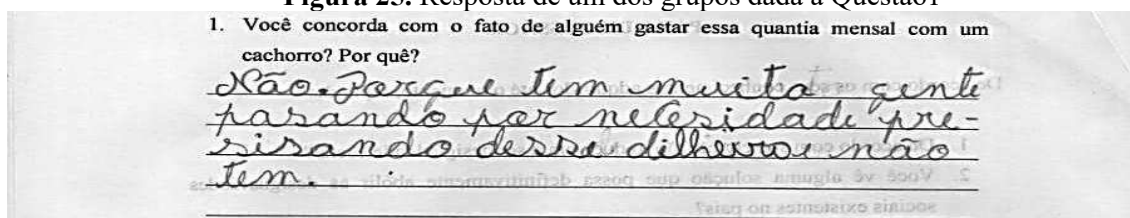 Figura 23. Resposta de um dos grupos dada à Questão1
1. Você concorda com o fato de alguém gastar essa quantia mensal com um
cachorro? Por quê?
Não. Porque tem muita gente
pasando por necesidade pre-
sisando desse dilheiro e não
tem.